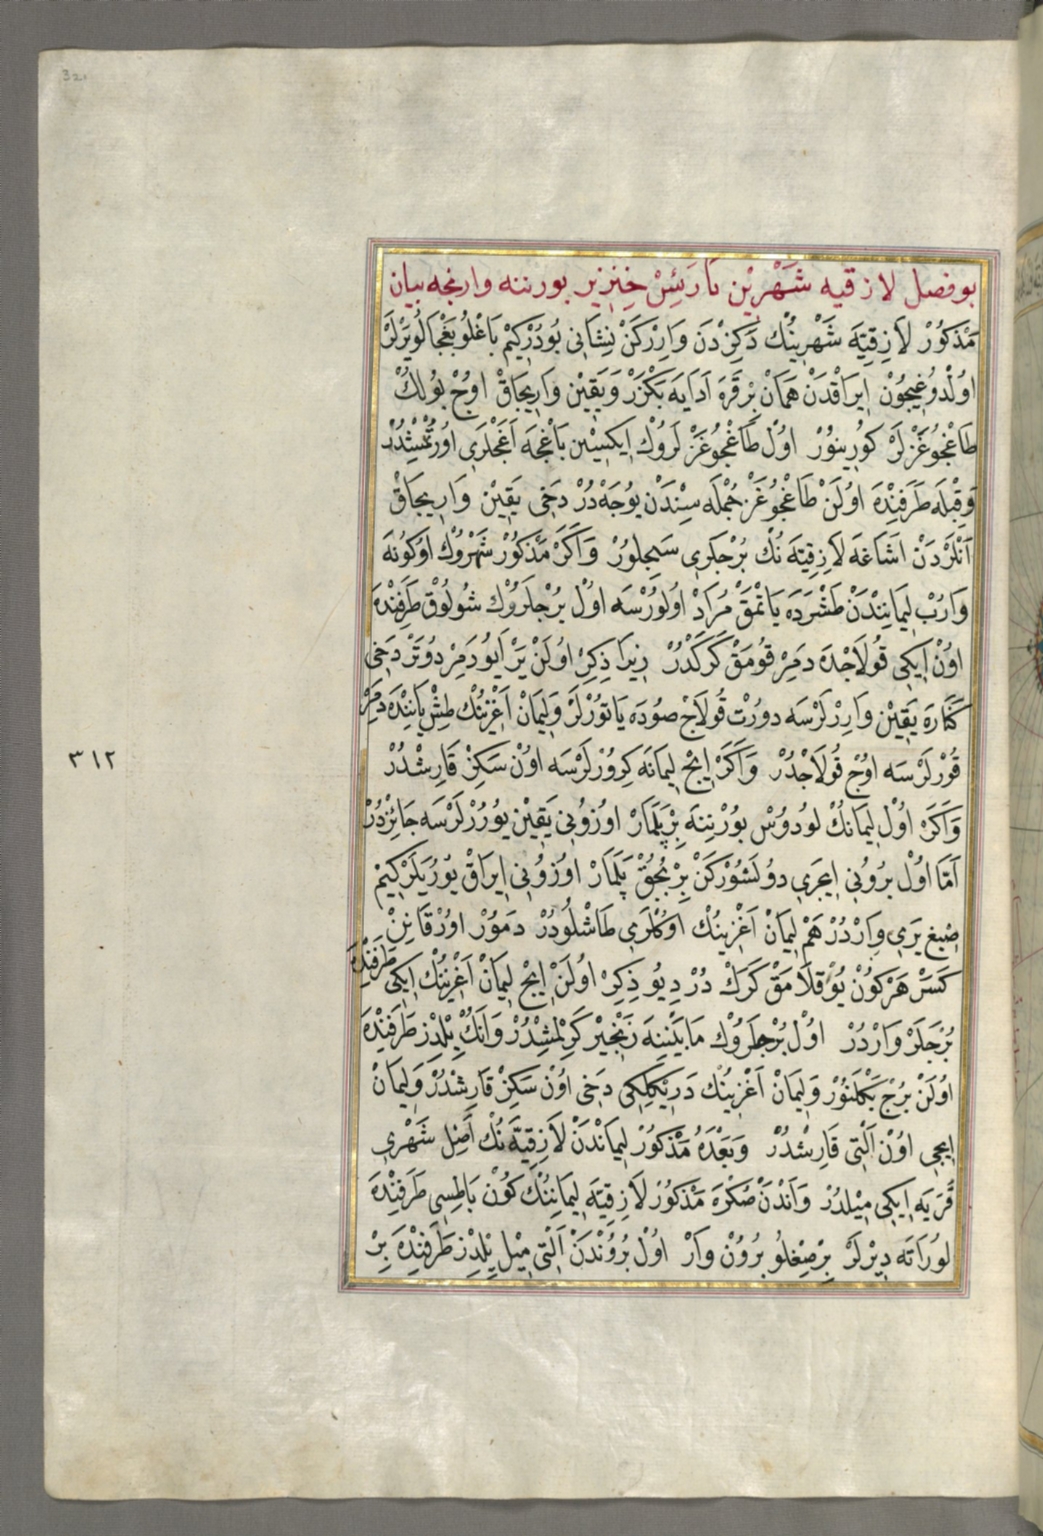 320
بو فصل لازقیه شهریْن تا رَئِسْ خِنزیر بورننه وارنجه بیان
مَذْكُورْ لَازِقِيَّه شَهْرِينُكْ دَكِزْدَنْ وَارِرْكَنْ نِشَانِى بُودُرْكِيمْ بَاغْلُو بَغْجَالُو يَرْلَرْ
اوُلْدُوغِيجُونْ اِيرَاقْدَنْ هَمَانْ بِرْ قَرَه اَدَايَه بَكْزَرْ وَيَقِينْ وَارِيجَاقْ اوُچْ بوُلُكْ
طَاغْجُوغَزْلَرْ كُورِينُورْ اوُلْ طَاغْجُوغَزْلَرُوكْ اِيكِيسِينْ بَاغْچَه اَغَجْلَرِى اوُرْتْمِشْدُرْ
وَقِبْلَه طَرَفِنْدَه اوُلَنْ طَاغْجُوغَزْ جُمْلَه سِنْدَنْ يُوجَه دُرْ دَخِى يَقِينْ وَارِيجَاقْ
اَنْلَرْدَنْ اَشَاغَه لَازِقِيَّه نُكْ بُرْجَلَرِى سَچِلُورْ وَاَكَرْ مَذْكُورْ شَهْرُوكْ اوُكُونَه
وَارُبْ لِيمَانِنْدَنْ طَشْرَدَه يَاتْمَقْ مُرَادْ اوُلُورْسَه اوُلْ بُرْجَلَرُوكْ شُولُوقْ طَرَفِنْدَه
اوُنْ اِيكِى قُولَاجْدَه دَمِرْ قُومَقْ كَرَكْدُرْ زِيرَا ذِكِرْ اوُلَنْ يَرْ اَيُو دَمِرْ دُوتَرْ دَخِى
كَنَارَه يَقِينْ وَارِرْلَرْسَه دورْت قُولَاجْ صُودَه يَاتُورْلَرْ وَلِيمَانْ اَغْزِينُكْ طِشْ يَانِنْدَه دَمِرْ
قُورْلَرْسَه اوُچْ قُولَاجْدُرْ وَاَكَرْ اِيچْ لِيمَانَه كِرُورْلَرْسَه اوُنْ سَكِزْ قَارِشْدُرْ
وَاَكَرْ اوُلْ لِيمَانُكْ لُودُوسْ بُورْنِنَه بِرْ پَلَمَارْ اوُزُونِى يَقِينْ يُورُرْلَرْسَه جَائِزْدُرْ
اَمَّا اوُلْ بُرُونِى اِيچَرِى دوُلَشُورْكَنْ بِرْ بُچُقْ پَلَمَارْ اوُزُونِى اِيرَاقْ يُورُيَلَرْ كِيمْ
صِيغ يَرِى وَارْدُرْ هَمْ لِيمَانْ اَغْزِينُكْ اوُكْلَرِى طَاشْلُودُرْ دَمُورْ اوُرْقَانِنْ
كَسَرْ هَرْ كُونْ يُوقْلَامَقْ كَرَكْ دُرْ دِيُو ذِكِرْ اوُلَنْ اِيچْ لِيمَانْ اَغْزِينُكْ اِيكِى طَرَفِنْدَه
بُرْجَلَرْ وَارْدُرْ اوُلْ بُرْجَلَرُوكْ مَابَيْنِنَه زَنْجِيرْ كَرِلْمِشْدُرْ وَاَنُكْ يِلْدِزْ طَرَفِنْدَه
اوُلَنْ بُرْجْ بَكْلَنُورْ وَلِيمَانْ اَغْزِينُكْ دَرِيْكْلِكِى دَخِى اوُنْ سَكِزْ قَارِشْدُرْ وَلِيمَانْ
اِيچِى اوُنْ اَلْتِى قَارِشْدُرْ وَبَعْدَهُ مَذْكُورْ لِيمَانْدَنْ لَازِقِيَّه نُكْ اَصِلْ شَهْرِى
قَرْيَه اِيكِى مِيلْدُرْ وَاَنْدَنْ صُكْرَه مَذْكُورْ لَازِقِيَّه لِيمَانِنُكْ كُونْ بَاطِسِى طَرَفِنْدَه
لُورَاتَه دِيرْلَرْ بِرْ صِغْلُو بُرُونْ وَارْ اوُلْ بُرُونْدَنْ اَلْتِى مِيلْ يِلْدِزْ طَرَفِنْدَه بِرْ
٣١٢